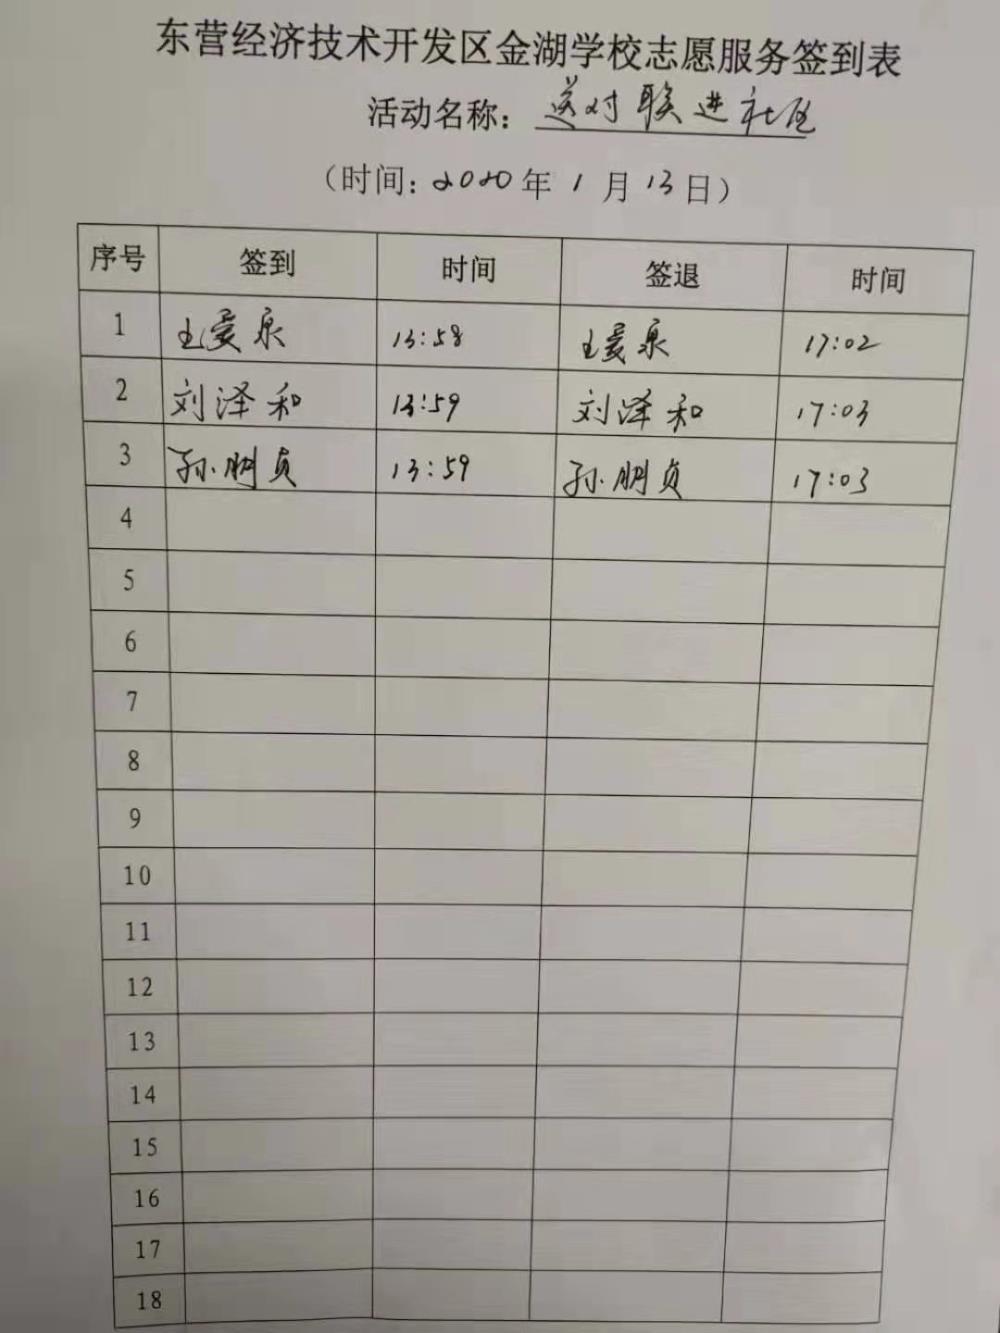 东营经济技术开发区金湖学校志愿服务签到表
活动名称：送对联进社区
（时间：2020年1月13日）
序号 签到 时间 签退 时间
1 王爱泉 13:58 王爱泉 17:02
2 刘泽和 13:59 刘泽和 17:03
3 孙鹏贞 13:59 孙鹏贞 17:03
4
5
6
7
8
9
10
11
12
13
14
15
16
17
18